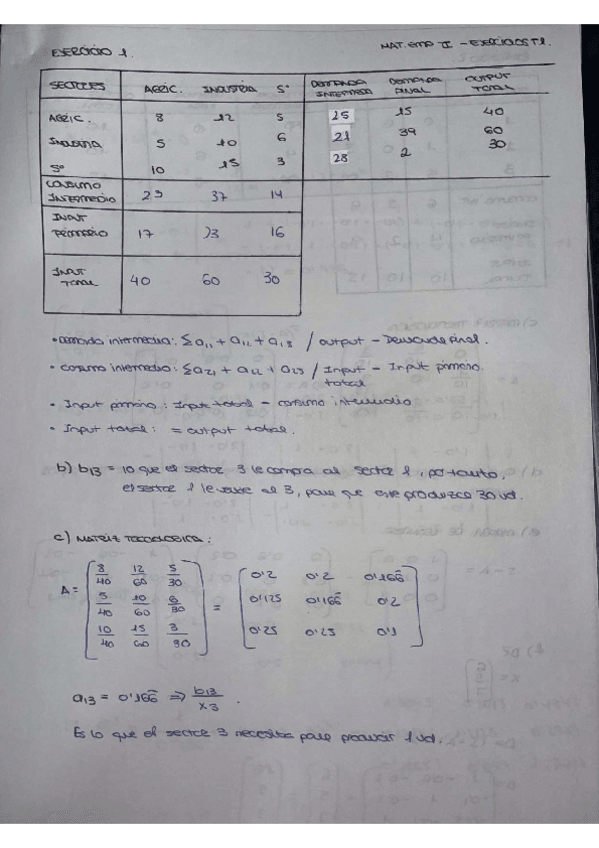 EJERCICIO 1. MAT. EMP II - EJERCICIOS T1.
SECTORES AGRIC. INDUSTRIA Sº DEMANDA INTERMEDIA DEMANDA FINAL OUTPUT TOTAL
AGRIC. 8 12 5 25 15 40
INDUSTRIA 5 10 6 21 39 60
Sº 10 15 3 28 2 30
CONSUMO INTERMEDIO 23 37 14
INPUT PRIMARIO 17 23 16
INPUT TOTAL 40 60 30
• Demanda intermedia: Σ a11 + a12 + a13 / output - Demanda Final.
• Consumo intermedio: Σ a21 + a22 + a23 / Input total - Input primario
• Input primario: Input total - consumo intermedio
• Input total: = output total.
b) b13 = 10 que el sector 3 le compra al sector 1, por tanto,
el sector 1 le vende al 3, para que este produzca 30 ud.
c) MATRIZ TECNOLÓGICA:
8/40 12/60 5/30 0'2 0'2 0'166
A = 5/40 10/60 6/30 = 0'125 0'166 0'2
10/40 15/60 3/30 0'25 0'25 0'1
a13 = 0'166 ⇒ b13/x3
Es lo que el sector 3 necesita para producir 1 ud.